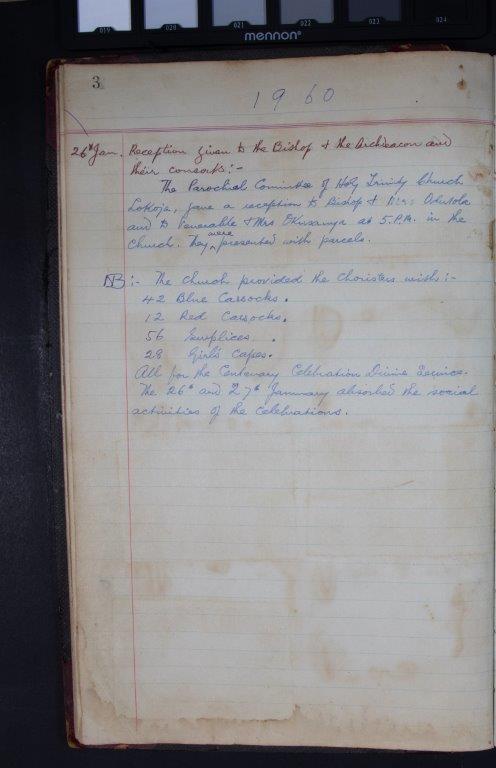 019 020 021 022 023 024
mennon®
3
1960
26th Jan. Reception given to the Bishop & the Archdeacon and
their consorts:-
The Parochial Committee of Holy Trinity Church
Lokoja, gave a reception to Bishop & Mrs Odutola
and to Venerable & Mrs Okusanya at 5.P.M. in the
Church. They were presented with parcels.
NB:- The Church provided the Choristers with:-
42 Blue Cassocks.
12 Red Cassocks.
56 Surplices.
28 Girls Capes.
All for the Centenary Celebration Divine Service.
The 26th and 27th January absorbed the social
activities of the Celebrations.